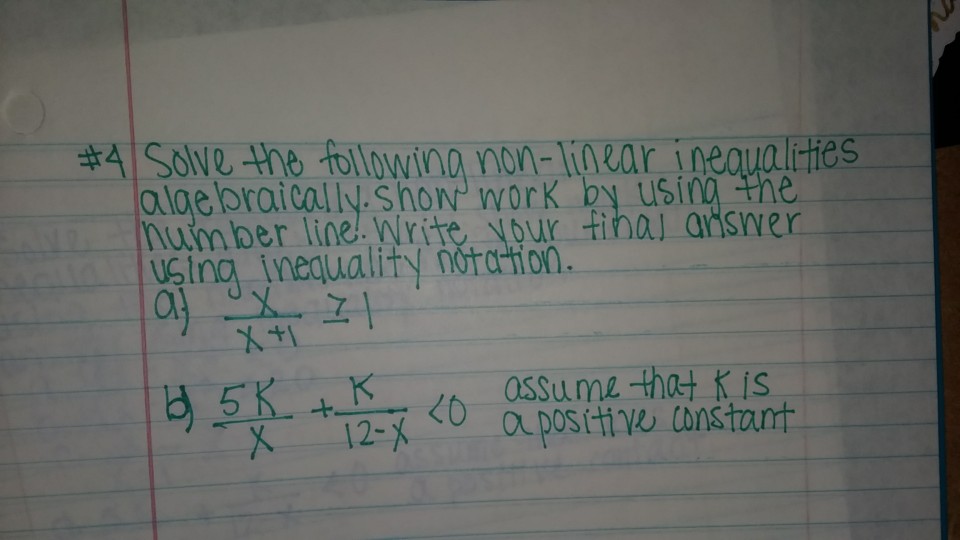 #4 Solve the following non-linear inequalities
algebraically. Show work by using the
number line. Write your final answer
using inequality notation.
a) x/(x+1) ≥ 1
b) 5K/x + K/(12-x) <0 assume that K is
a positive constant